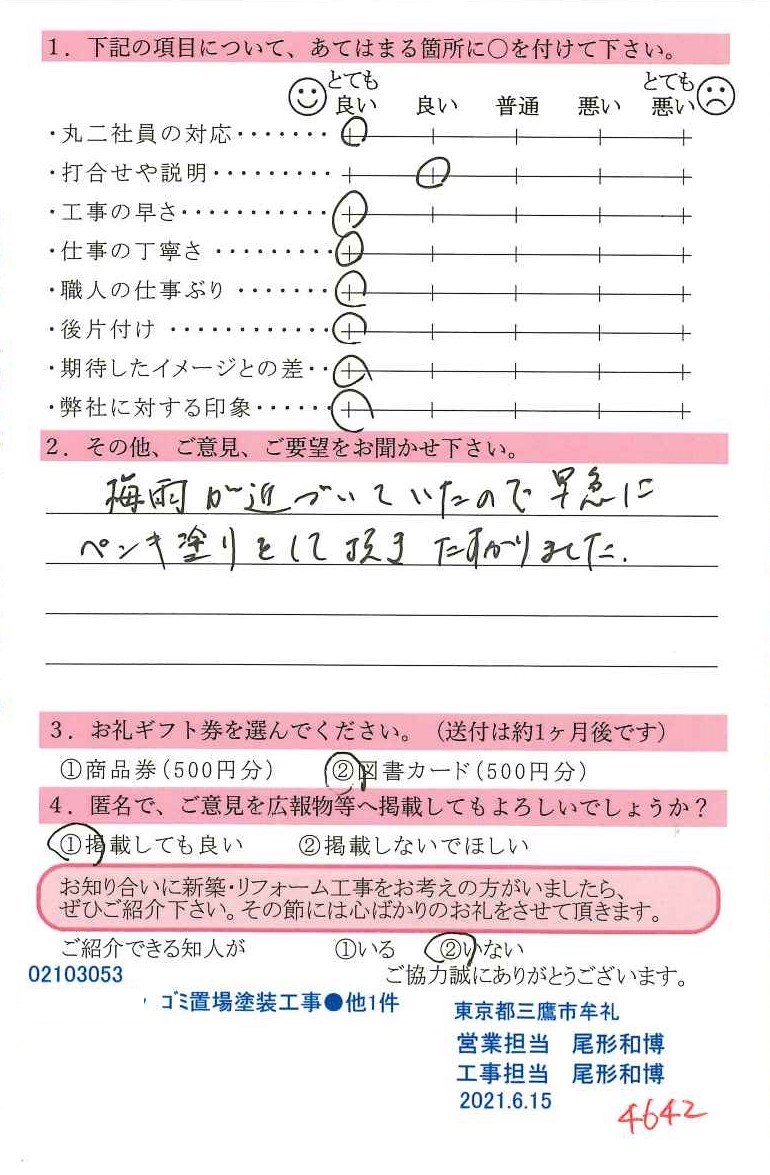 1．下記の項目について、あてはまる箇所に○を付けて下さい。
とても良い 良い 普通 悪い とても悪い
・丸二社員の対応・・・・・・・
・打合せや説明・・・・・・・・・
・工事の早さ・・・・・・・・・・・
・仕事の丁寧さ・・・・・・・・・
・職人の仕事ぶり・・・・・・・
・後片付け・・・・・・・・・・・・
・期待したイメージとの差・・
・弊社に対する印象・・・・・・
2．その他、ご意見、ご要望をお聞かせ下さい。
梅雨が近づいていたので早急に
ペンキ塗りをして頂きたすかりました.
3．お礼ギフト券を選んでください。（送付は約1ヶ月後です）
①商品券（500円分） ②図書カード（500円分）
4．匿名で、ご意見を広報物等へ掲載してもよろしいでしょうか？
①掲載しても良い ②掲載しないでほしい
お知り合いに新築・リフォーム工事をお考えの方がいましたら、
ぜひご紹介下さい。その節には心ばかりのお礼をさせて頂きます。
ご紹介できる知人が ①いる ②いない
02103053 ご協力誠にありがとうございます。
ゴミ置場塗装工事●他1件
東京都三鷹市牟礼
営業担当 尾形和博
工事担当 尾形和博
2021.6.15
4642